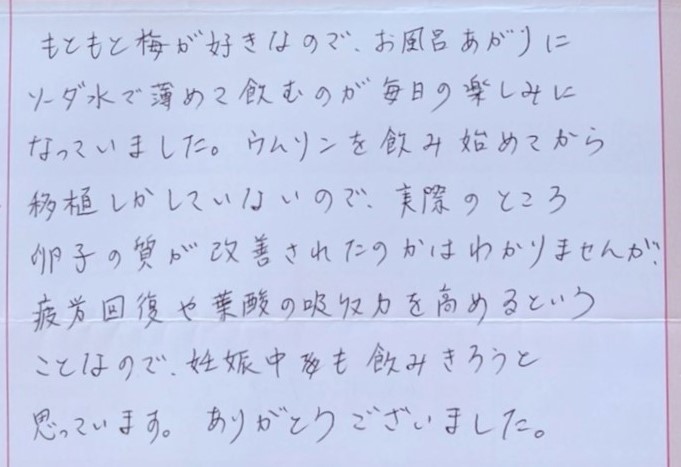 もともと梅が好きなので、お風呂あがりに
ソーダ水で薄めて飲むのが毎日の楽しみに
なっていました。ウムリンを飲み始めてから
移植しかしていないので、実際のところ
卵子の質が改善されたのかはわかりませんが、
疲労回復や葉酸の吸収力を高めるという
ことなので、妊娠中も飲みきろうと
思っています。ありがとうございました。